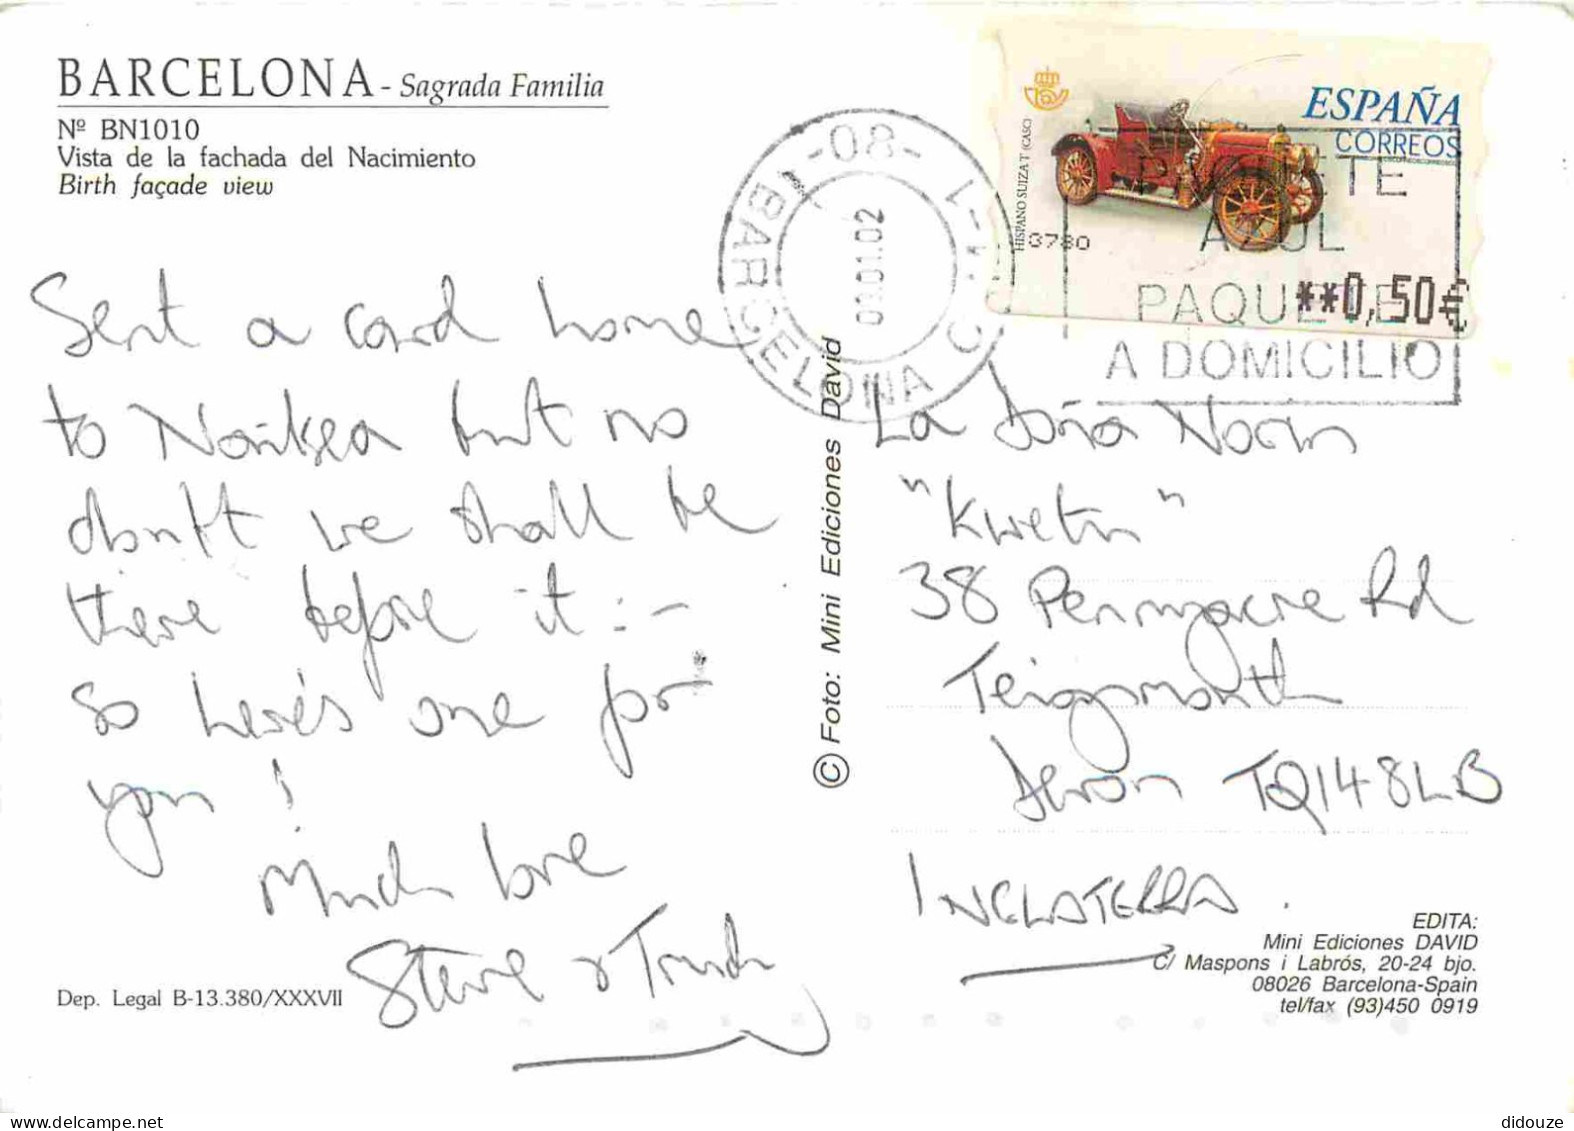 BARCELONA - Sagrada Familia
Nº BN1010
Vista de la fachada del Nacimiento
Birth façade view
Sent a card home
to but no
doubt we shall be
there before it :-
so here's one for
you !
Much love
Steve & Trudy
Dep. Legal B-13.380/XXXVII
© Foto: Mini Ediciones David
-08-
BARCELONA
.01.02
ESPAÑA
CORREOS
HISPANO SUIZA T (CASC)
0780
**0,50€
AZUL
PAQUETE
A DOMICILIO
La Doña
38 Rd
Teignmouth
Devon TQ148LB
INGLATERRA.
EDITA:
Mini Ediciones DAVID
C/ Maspons i Labrós, 20-24 bjo.
08026 Barcelona-Spain
tel/fax (93)450 0919
delcampe.net
didouze